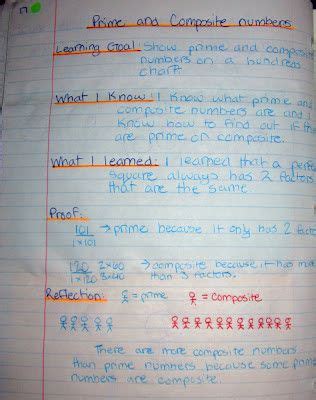 Prime and Composite numbers
Learning Goal: Show prime and composite
numbers on a hundreds
chart
What I Know: I know what prime and
composite numbers are and I
know how to find out if they
are prime or composite.
What I learned: I learned that a perfect
square always has 2 factors
that are the same.
Proof:
101 → prime because it only has 2 factors
1x101
120 2x60 → composite because it has more
1x120 3x40 than 3 factors.
Reflection: = prime = composite
There are more composite numbers
than prime numbers because some prime
numbers are composite.